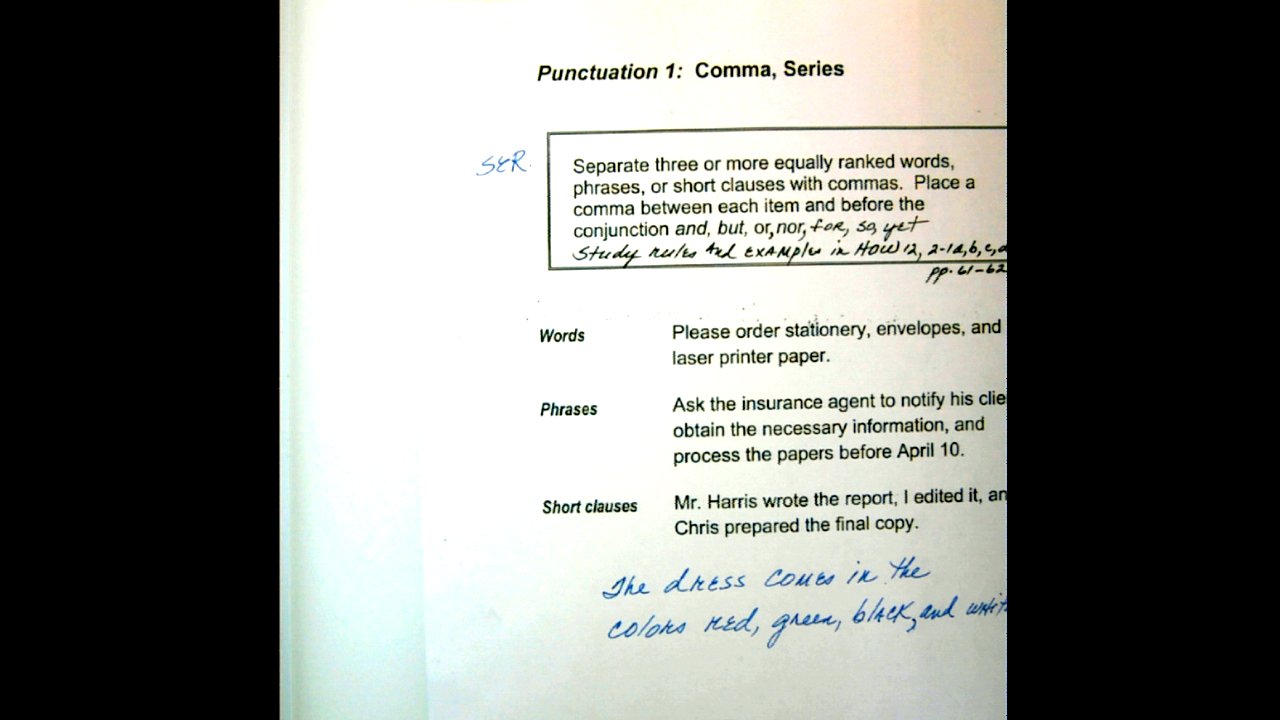 Punctuation 1: Comma, Series
SER.
Separate three or more equally ranked words,
phrases, or short clauses with commas. Place a
comma between each item and before the
conjunction and, but, or, nor, for, so, yet
Study rules and examples in HOW 12, 2-1a, b, c, d
pp. 61-62
Words Please order stationery, envelopes, and
laser printer paper.
Phrases Ask the insurance agent to notify his clie
obtain the necessary information, and
process the papers before April 10.
Short clauses Mr. Harris wrote the report, I edited it, an
Chris prepared the final copy.
The dress comes in the
colors red, green, black, and whit